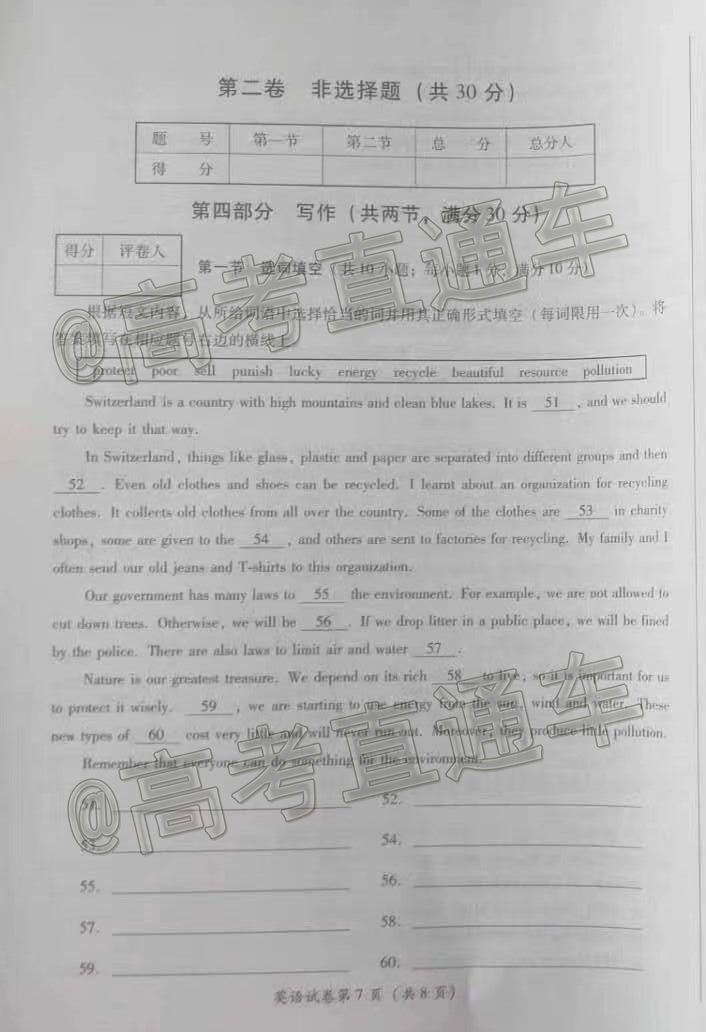 第二卷 非选择题（共30分）
题 号 第一节 第二节 总 分 总分人
得 分
第四部分 写作（共两节，满分30分）
得分 评卷人
第一节 选词填空（共10小题；每小题1分，满分10分）
根据短文内容，从所给词语中选择恰当的词并用其正确形式填空（每词限用一次）。将
答案填写在相应题号右边的横线上。
protect poor sell punish lucky energy recycle beautiful resource pollution
Switzerland is a country with high mountains and clean blue lakes. It is 51 , and we should
try to keep it that way.
In Switzerland, things like glass, plastic and paper are separated into different groups and then
52 . Even old clothes and shoes can be recycled. I learnt about an organization for recycling
clothes. It collects old clothes from all over the country. Some of the clothes are 53 in charity
shops, some are given to the 54 , and others are sent to factories for recycling. My family and I
often send our old jeans and T-shirts to this organization.
Our government has many laws to 55 the environment. For example, we are not allowed to
cut down trees. Otherwise, we will be 56 . If we drop litter in a public place, we will be fined
by the police. There are also laws to limit air and water 57 .
Nature is our greatest treasure. We depend on its rich 58 to live, so it is important for us
to protect it wisely. 59 , we are starting to use energy from the sun, wind and water. These
new types of 60 cost very little and will never run out. Moreover, they produce little pollution.
Remember that everyone can do something for the environment.
51. 52.
53. 54.
55. 56.
57. 58.
59. 60.
英语试卷第7页（共8页）
@高考直通车
@高考直通车